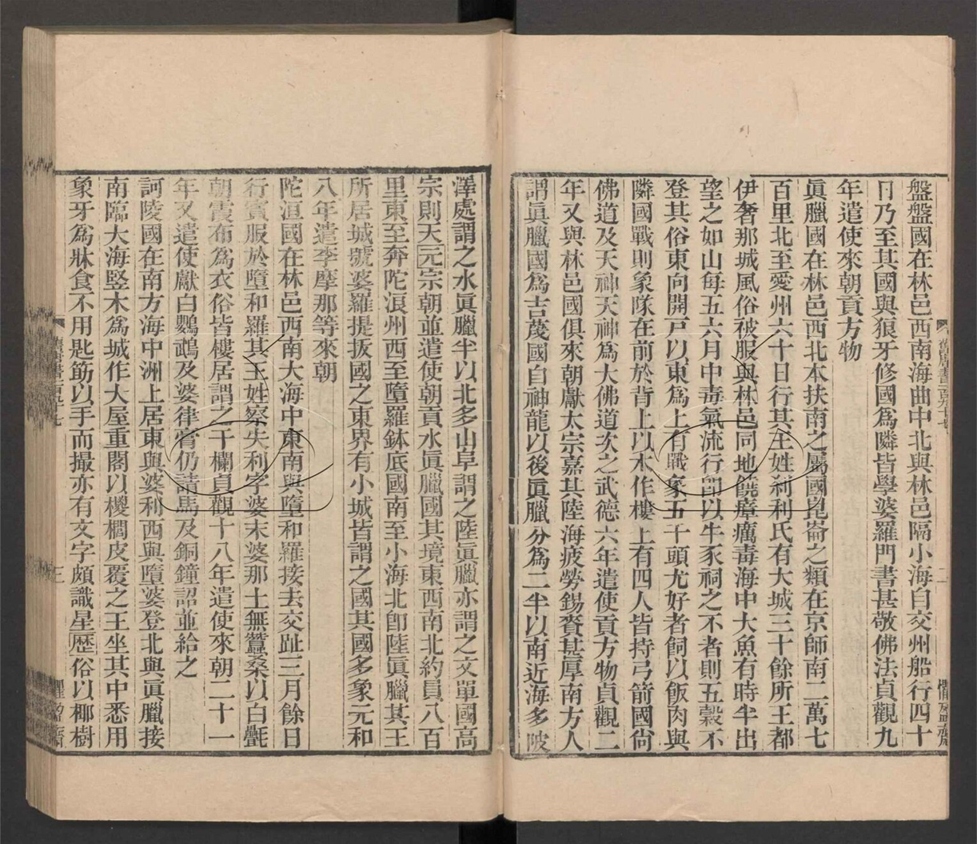 盤盤國在林邑西南海曲中北與林邑隔小海自交州船行四十
日乃至其國與狼牙修國爲隣皆學婆羅門書甚敬佛法貞觀九
年遣使來朝貢方物
眞臘國在林邑西北本扶南之屬國崑崙之類在京師南二萬七
百里北至愛州六十日行其王姓刹利氏有大城三十餘所王都
伊奢那城風俗被服與林邑同地饒瘴癘毒海中大魚有時半出
望之如山每五六月中毒氣流行卽以牛豕祠之不者則五穀不
登其俗東向開戸以東爲上有戰象五千頭尤好者飼以飯肉與
隣國戰則象隊在前於背上以木作樓上有四人皆持弓箭國尙
佛道及天神天神爲大佛道次之武德六年遣使貢方物貞觀二
年又與林邑國俱來朝獻太宗嘉其陸海疲勞錫賚甚厚南方人
謂眞臘國爲吉蔑國自神龍以後眞臘分爲二半以南近海多陂
澤處謂之水眞臘半以北多山阜謂之陸眞臘亦謂之文單國高
宗則天元宗朝並遣使朝貢水眞臘國其境東西南北約員八百
里東至奔陀浪州西至墮羅鉢底國南至小海北卽陸眞臘其王
所居城號婆羅提拔國之東界有小城皆謂之國其國多象元和
八年遣李摩那等來朝
陀洹國在林邑西南大海中東南與墮和羅接去交趾三月餘日
行賓服於墮和羅其王姓察失利字婆末婆那土無蠶桑以白氎
朝霞布爲衣俗皆樓居謂之干欄貞觀十八年遣使來朝二十一
年又遣使獻白鸚鵡及婆律膏仍請馬及銅鐘詔並給之
訶陵國在南方海中洲上居東與婆利西與墮婆登北與眞臘接
南臨大海竪木爲城作大屋重閣以椶櫚皮覆之王坐其中悉用
象牙爲牀食不用匙筯以手而撮亦有文字頗識星歷俗以椰樹